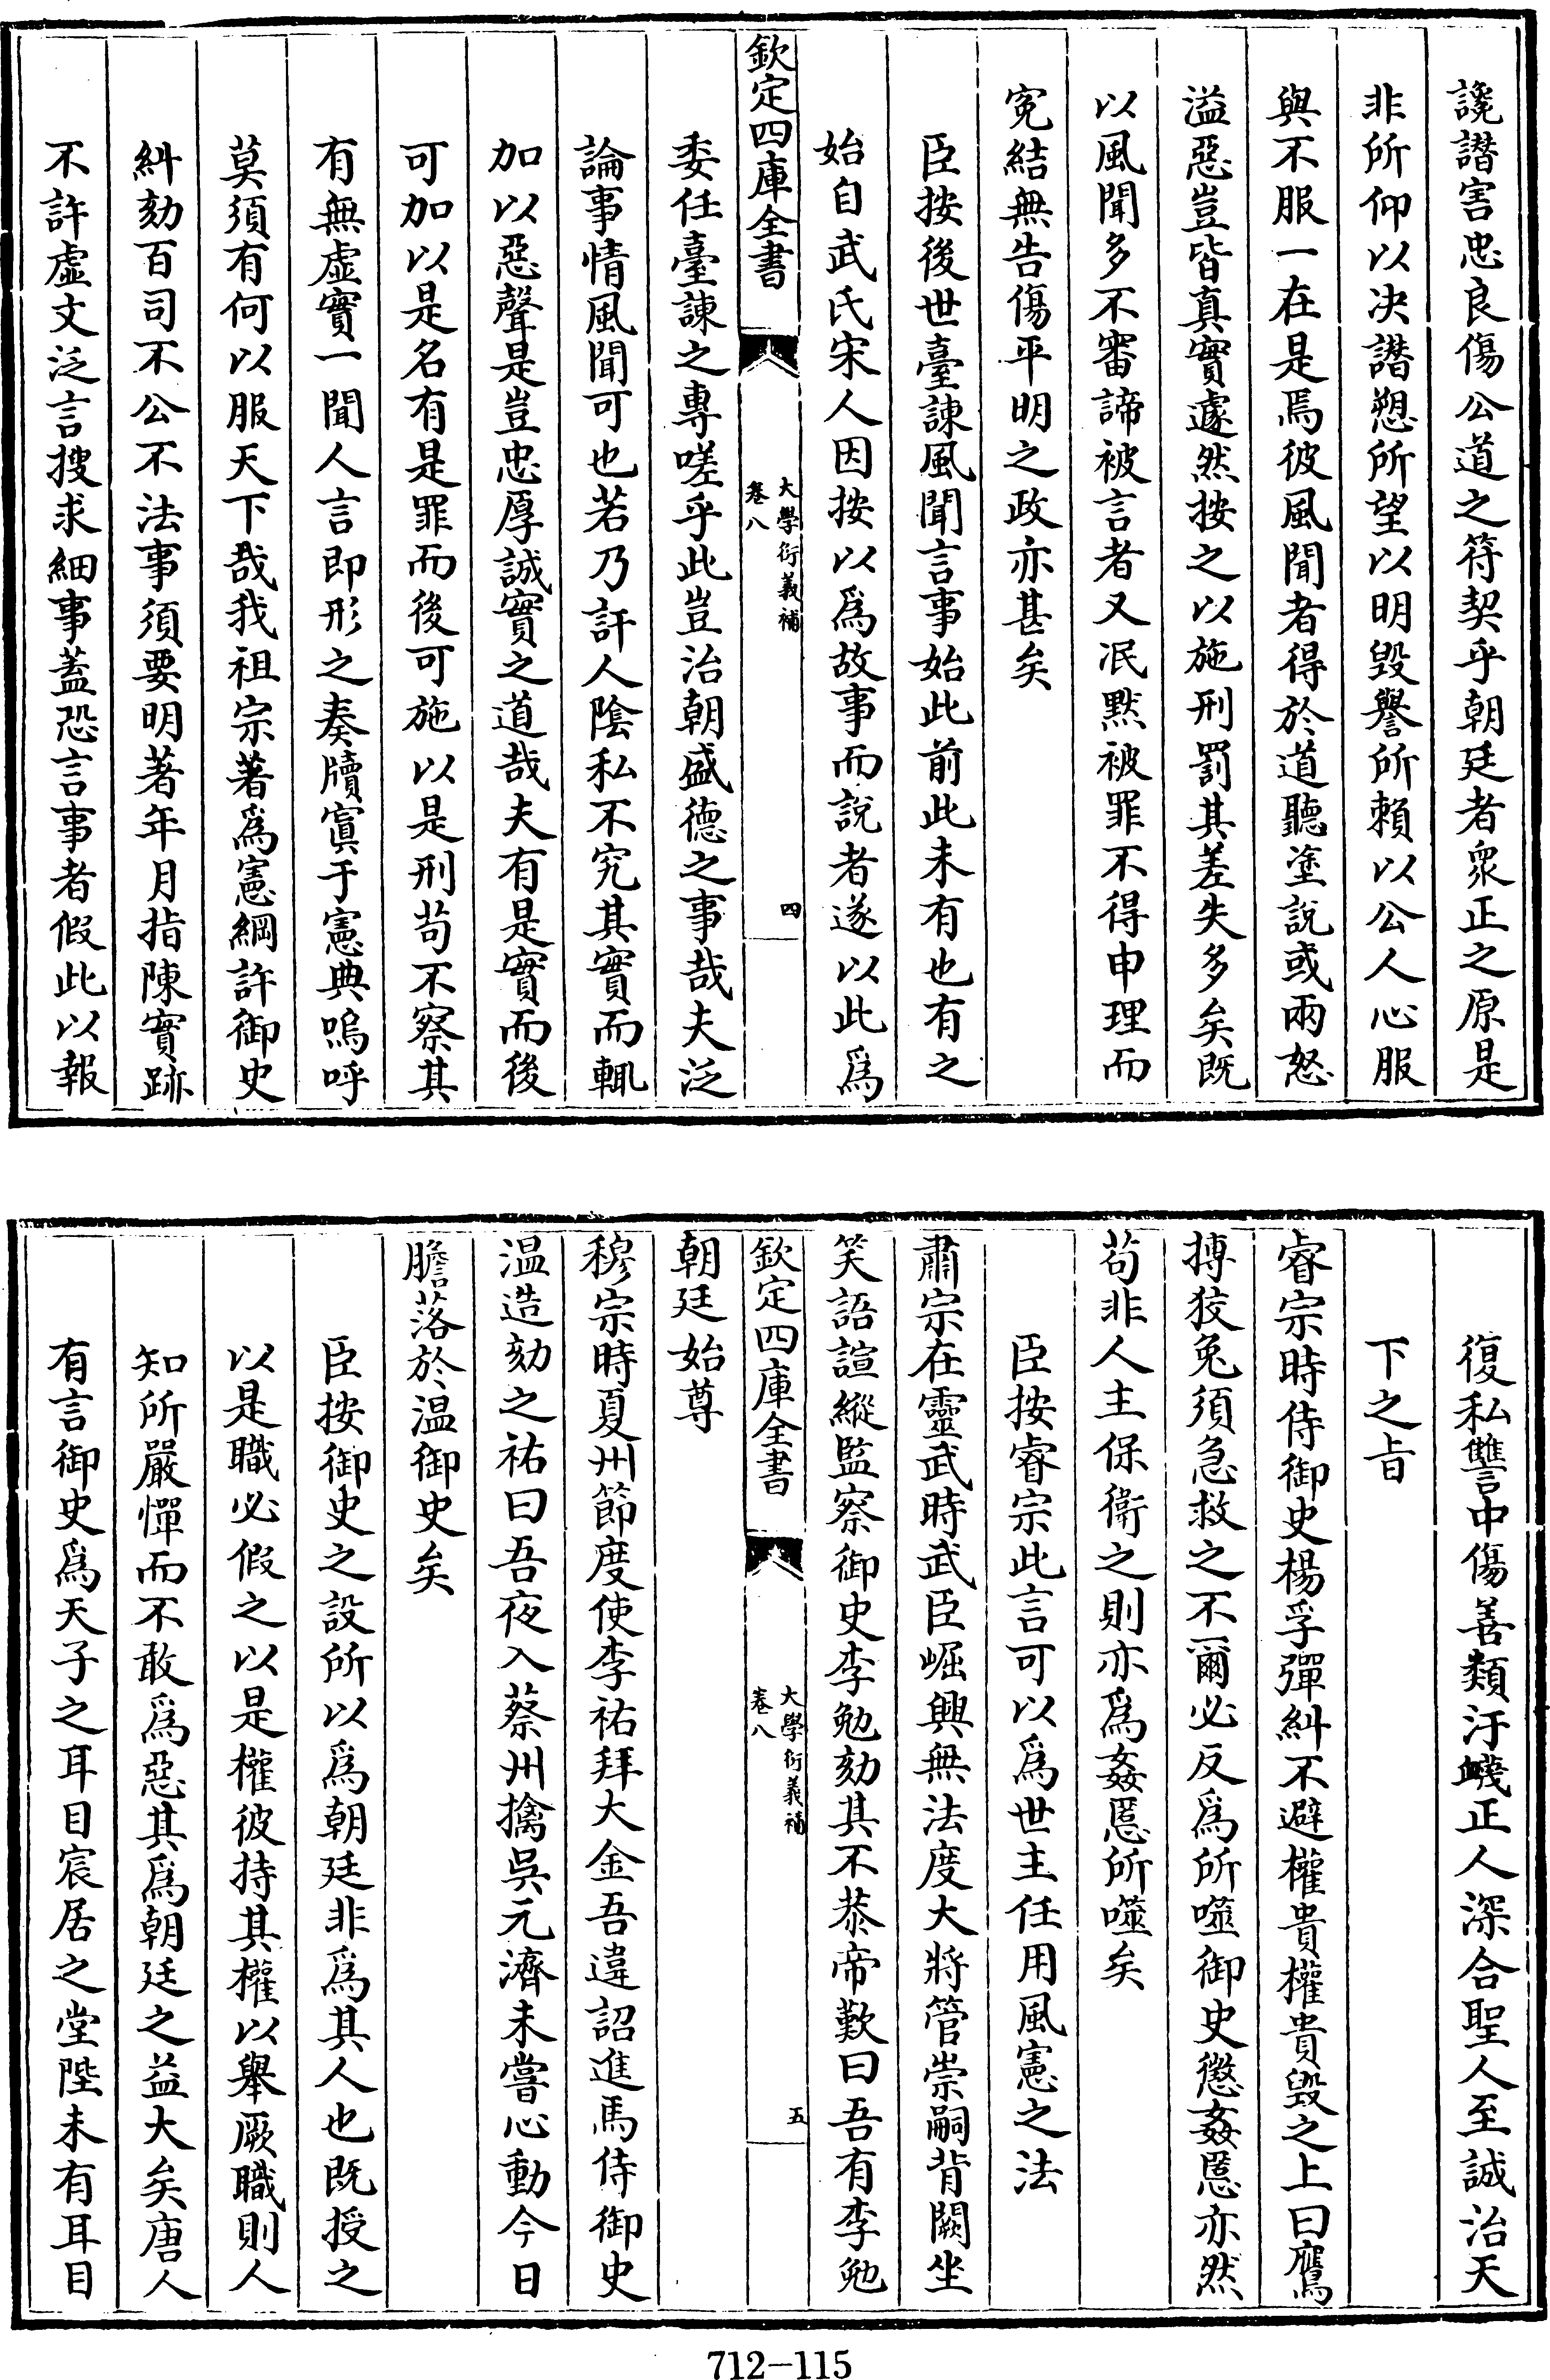 讒譖害忠良傷公道之符契乎朝廷者衆正之原是
非所仰以决譖愬所望以明毀譽所賴以公人心服
與不服一在是焉彼風聞者得於道聽塗說或兩怒
溢惡豈皆真實遽然按之以施刑罰其差失多矣既
以風聞多不審諦被言者又泯默被罪不得申理而
寃結無告傷平明之政亦甚矣
臣按後世臺諫風聞言事始此前此未有也有之
始自武氏宋人因按以爲故事而說者遂以此爲
欽定四庫全書
大學衍義補
卷八
四
委任臺諫之專嗟乎此豈治朝盛德之事哉夫泛
論事情風聞可也若乃訐人陰私不究其實而輒
加以惡聲是豈忠厚誠實之道哉夫有是實而後
可加以是名有是罪而後可施以是刑苟不察其
有無虛實一聞人言即形之奏牘寘于憲典嗚呼
莫須有何以服天下哉我祖宗著爲憲綱許御史
糾劾百司不公不法事須要明著年月指陳實跡
不許虛文泛言搜求細事蓋恐言事者假此以報
復私讐中傷善類汙衊正人深合聖人至誠治天
下之旨
睿宗時侍御史楊孚彈糾不避權貴權貴毀之上曰鷹
搏狡兔須急救之不爾必反爲所噬御史懲姦慝亦然
苟非人主保衞之則亦爲姦慝所噬矣
臣按睿宗此言可以爲世主任用風憲之法
肅宗在靈武時武臣崛興無法度大將管崇嗣背闕坐
笑語諠縱監察御史李勉劾其不恭帝歎曰吾有李勉
欽定四庫全書
大學衍義補
卷八
五
朝廷始尊
穆宗時夏州節度使李祐拜大金吾違詔進馬侍御史
温造劾之祐曰吾夜入蔡州擒吳元濟未嘗心動今日
膽落於温御史矣
臣按御史之設所以爲朝廷非爲其人也既授之
以是職必假之以是權彼持其權以舉厥職則人
知所嚴憚而不敢爲惡其爲朝廷之益大矣唐人
有言御史爲天子之耳目宸居之堂陛未有耳目
712-115